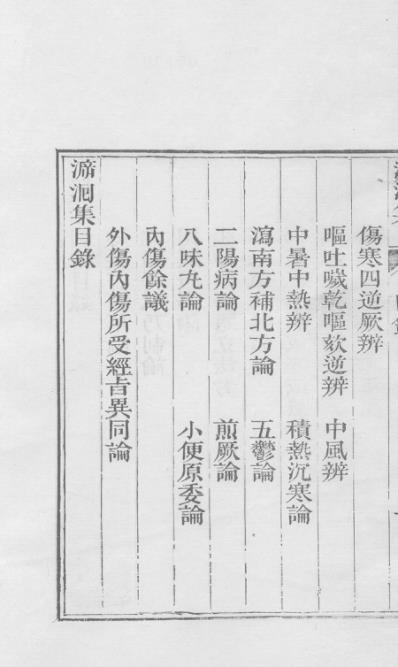 傷寒四逆厥辨
嘔吐噦乾嘔欬逆辨　中風辨
中暑中熱辨　積熱沉寒論
瀉南方補北方論　五鬱論
二陽病論　煎厥論
八味丸論　小便原委論
內傷餘議
外傷內傷所受經旨異同論
溯洄集目錄